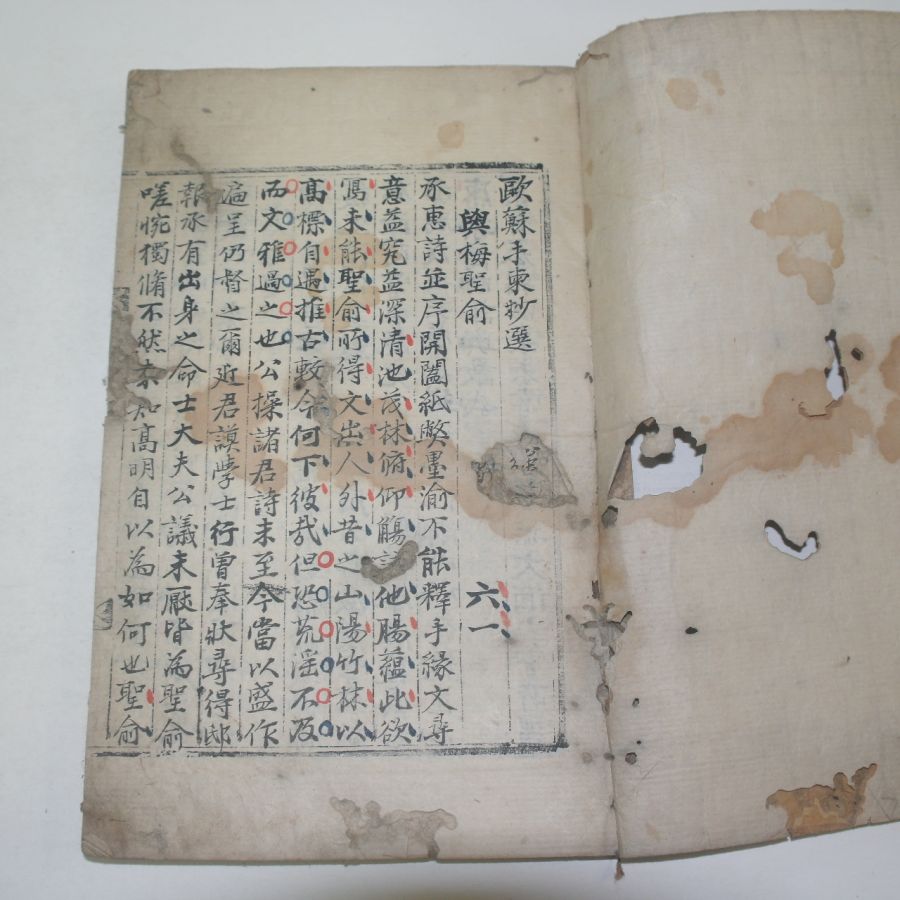 歐蘇手柬抄選
與梅聖俞 六一
承惠詩並序開闔紙弊墨渝不能釋手緣文尋
意益究益深清池茂林俯仰觴詠他腸蘊此欲
寫未能聖俞所得文出人外昔之山陽竹林以
髙標自遇推古較今何下彼哉但恐荒淫不及
而文雅過之也公操諸君詩未至今當以盛作
遍呈仍督之爾近君謨學士行曾奉狀尋得邸
報承有出身之命士大夫公議未厭皆為聖俞
嗟惋獨脩不然未知髙明自以為如何也聖俞